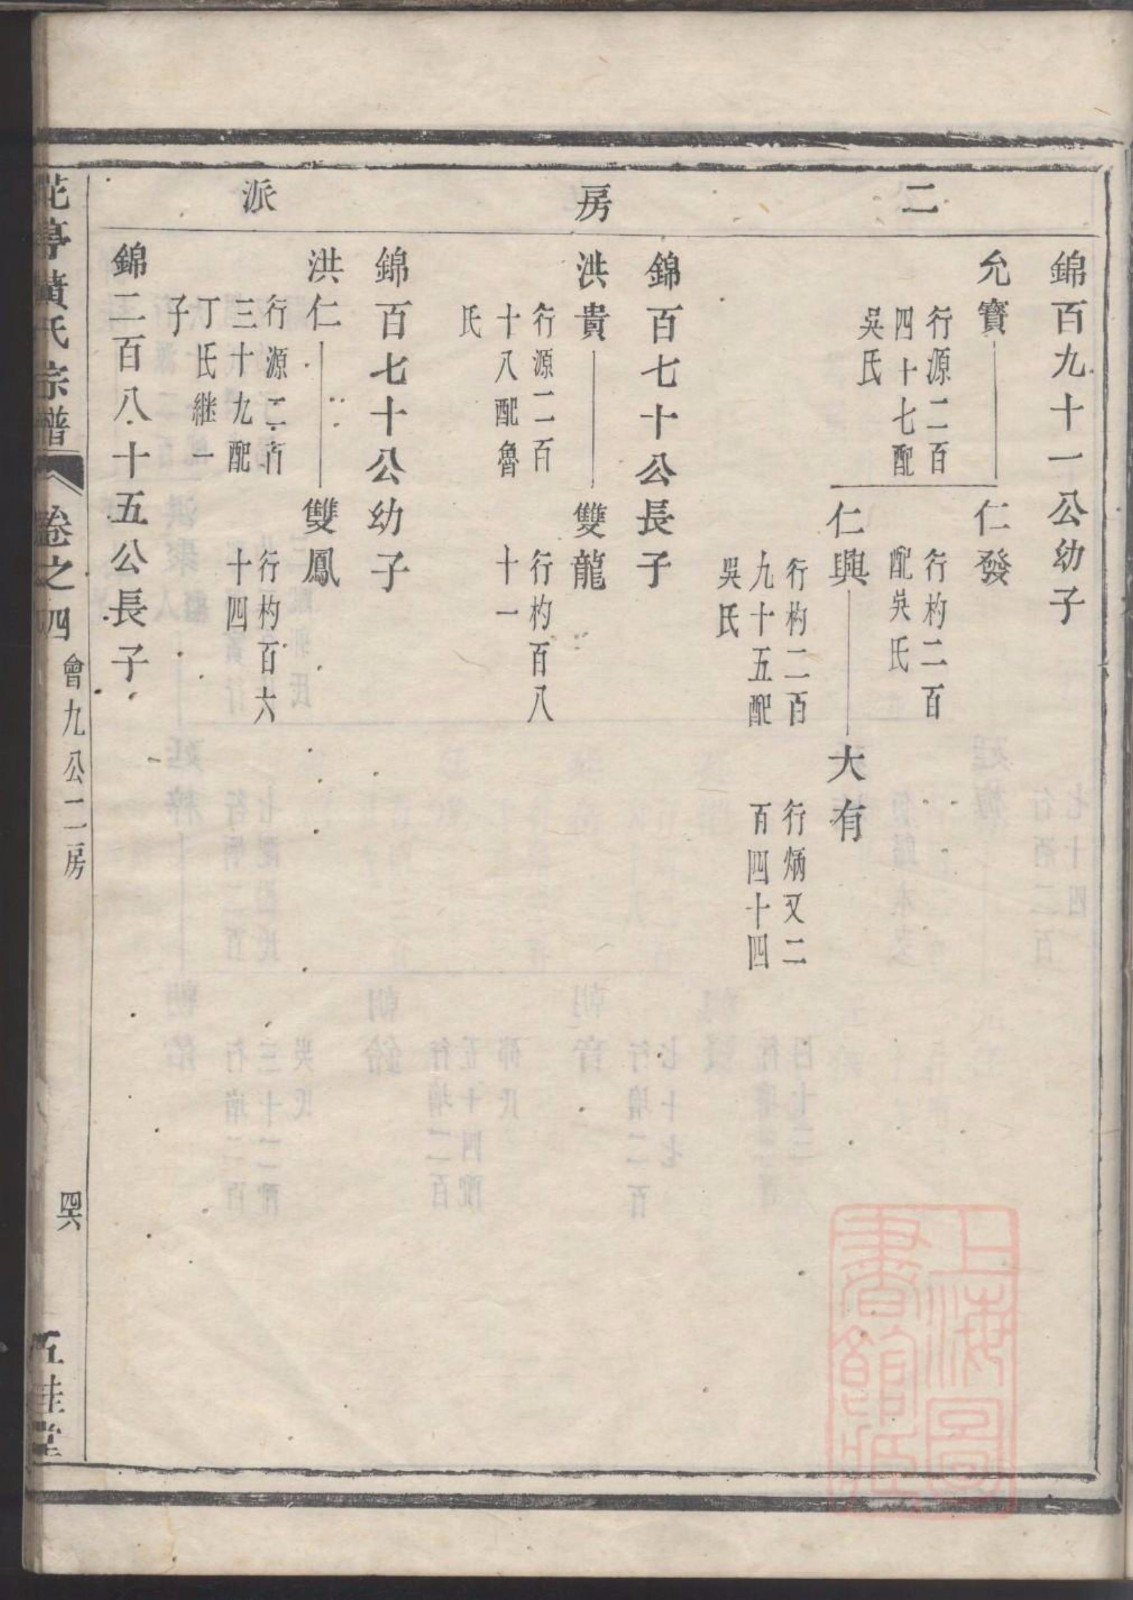 二房派
錦百九十一公幼子
允寶
行源二百
四十七配
吳氏
仁發
行杓二百
配吳氏
仁興
行杓二百
九十五配
吳氏
大有
行炳又二
百四十四
錦百七十公長子
洪貴
行源二百
十八配魯
氏
雙龍
行杓百八
十一
錦百七十公幼子
洪仁
行源二百
三十九配
丁氏継一
子
雙鳳
行杓百六
十四
錦二百八十五公長子
花亭黃氏宗譜
卷之四
會九公二房
四六
五桂堂
上海圖
書館藏